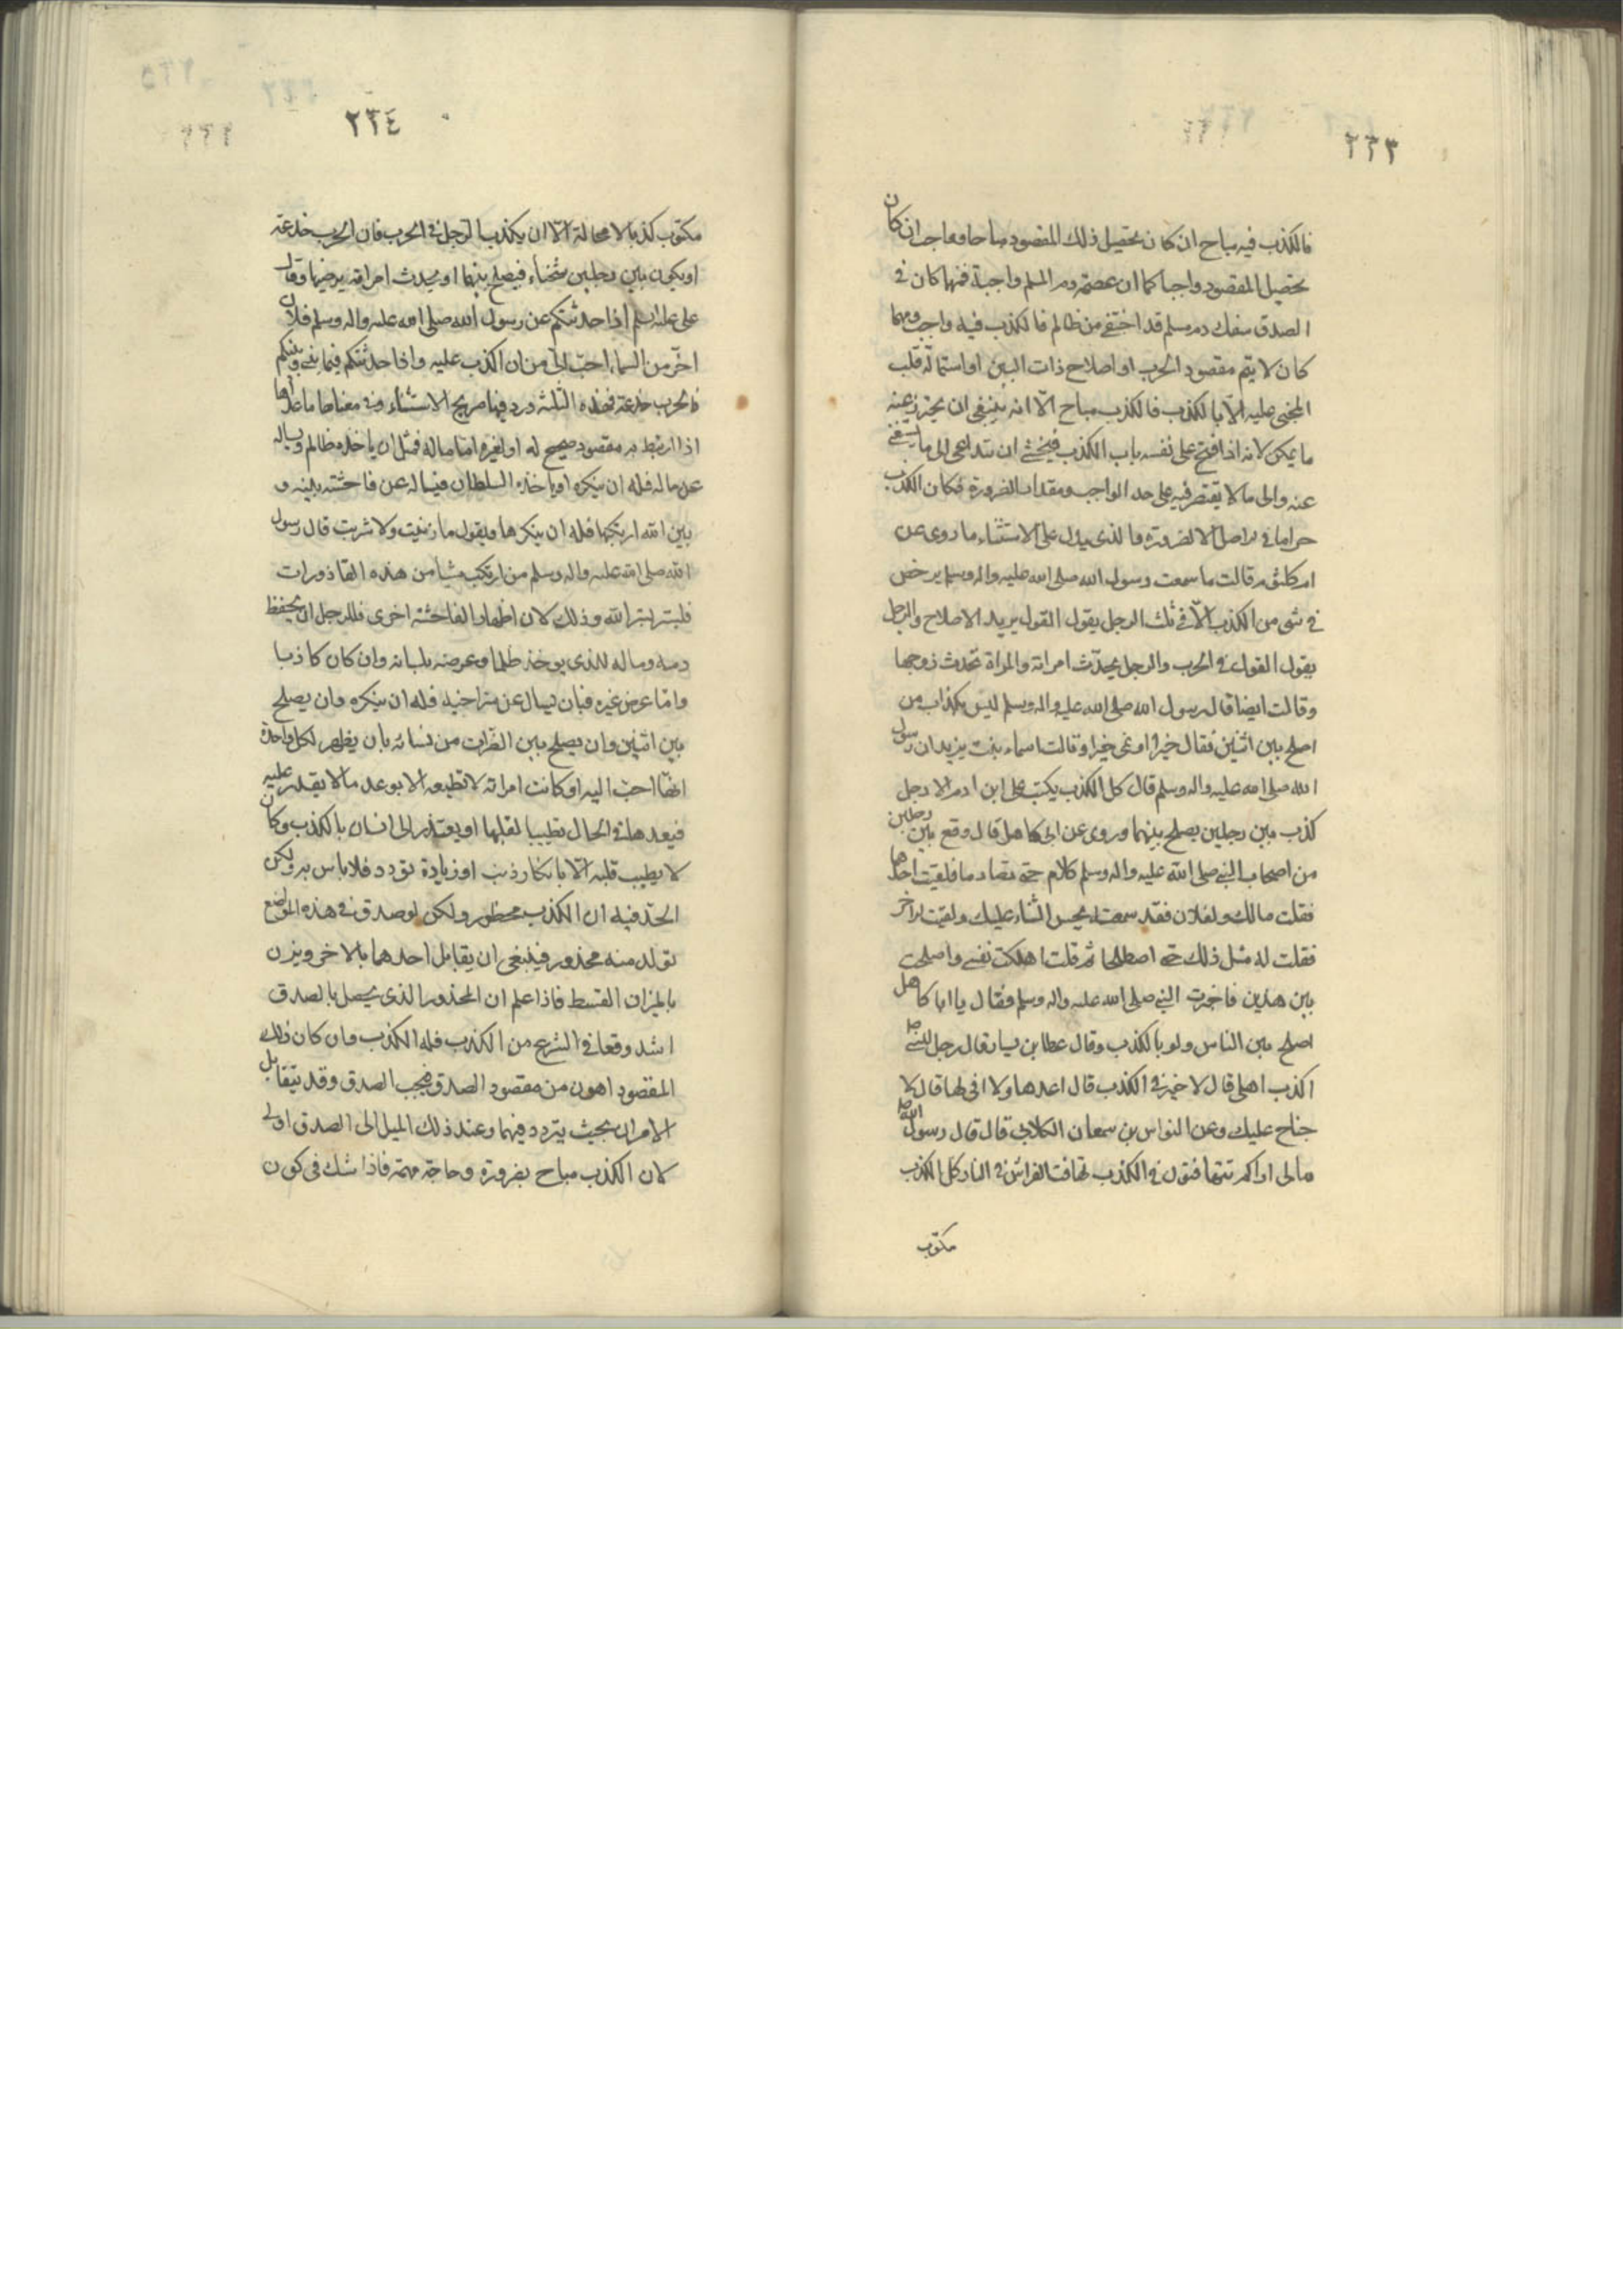 ٢٣٣
فالكذب فيه مباح ان كان تحصيل ذلك المقصود مباحا وواجب ان كان
تحصيل المقصود واجبا كما ان عصمة دم المسلم واجبة فمهما كان في
الصدق سفك دم مسلم قد اختفى من ظالم فالكذب فيه واجب ومهما
كان لا يتم مقصود الحرب او اصلاح ذات البين او استمالة قلب
المجنى عليه الا بالكذب فالكذب مباح الّا انه ينبغى ان يحترز عنه
ما يمكن لانه اذا فتح على نفسه باب الكذب فيخشى ان يتداعى الى ما يستغنى
عنه والى ما لا يقتصر فيه على حد الواجب ومقدار الضرورة فكان الكذب
حراما في الاصل الا لضرورة فالذى يدل على الاستثناء ما روى عن
ام كلثوم قالت ما سمعت رسول الله صلى الله عليه واله وسلم يرخص
في شى من الكذب الّا في ثلث الرجل يقول القول يريد الاصلاح والرجل
يقول القول في الحرب والرجل يحدّث امراته والمراة تحدث زوجها
وقالت ايضا قال رسول الله صلى الله عليه واله وسلم ليس بكذاب من
اصلح بين اثنين فقال خيرا او نمى خيرا وقالت اسماء بنت يزيد ان رسول
الله صلى الله عليه واله وسلم قال كل الكذب يكتب على ابن ادم الا رجل
كذب بين رجلين يصلح بينهما وروى عن ابى كاهل قال وقع بين رجلين
من اصحاب النبي صلى الله عليه واله وسلم كلام حتى تصادما فلقيت احدهما
فقلت مالك ولفلان فقد سمعته يحسن الثناء عليك ولقيت الاخر
فقلت له مثل ذلك حتى اصطلحا ثم قلت اهلكت نفسى واصلحت
بين هذين فاخبرت النبي صلى الله عليه واله وسلم فقال يا ابا كاهل
اصلح بين الناس ولو بالكذب وقال عطا بن يسار قال رجل للنبي ص
اكذب اهلى قال لا خير في الكذب قال اعدها واقول لها قال لا
جناح عليك وعن النواس بن سمعان الكلابى قال قال رسول الله ص
مالى اراكم تتهافتون في الكذب تهافت الفراش في النار كل الكذب
مكتوب
٢٣٤
مكتوب كذبا لا محالة الّا ان يكذب الرجل في الحرب فان الحرب خدعة
او يكون بين رجلين شحناء فيصلح بينهما او يحدث امراته يرضيها وقال
على عليه السلم اذا حدثتكم عن رسول الله صلى الله عليه واله وسلم فلان
اخرّ من السماء احبّ الىّ من ان اكذب عليه واذا حدثتكم فيما بينى وبينكم
فالحرب خدعة فهذه الثلثة ورد فيها صريح الاستثناء وفى معناها ما عداها
اذا ارتبط به مقصود صحيح له او لغيره امّا ماله فمثل ان ياخذه ظالم ويساله
عن ماله فله ان ينكره او ياخذه السلطان فيساله عن فاحشة بينه و
بين الله ارتكبها فله ان ينكرها ويقول ما زنيت ولا شربت قال رسول
الله صلى الله عليه واله وسلم من ارتكب شيئا من هذه القاذورات
فليستتر بستر الله وذلك لان اظهار الفاحشة اخرى فللرجل ان يحفظ
دمه وماله الذى يوخذ ظلما وعرضه بلسانه وان كان كاذبا
وامّا عرض غيره فبان يسال عن سرّ اخيه فله ان ينكره وان يصلح
بين اثنين وان يصلح بين الضرات من نسائه بان يظهر لكل واحدة
انهّا احبّ اليه او كانت امراته لا تطيعه الا بوعد ما لا يقدر عليه
فيعدها في الحال تطييبا لقلبها او يعتذر الى انسان بالكذب وكان
لا يطيب قلبه الّا بانكار ذنب او زيادة تودد فلا باس به ولكن
الحدّ فيه ان الكذب محظور ولكن لو صدق في هذه المواضع
تولد منه محذور فينبغى ان يقابل احدهما بالاخر ويزن
بالميزان القسط فاذا علم ان المحذور الذى يحصل بالصدق
اشد وقعا في الشرع من الكذب فله الكذب وان كان ذلك
المقصود اهون من مقصود الصدق فيجب الصدق وقد يتقابل
الامران بحيث يتردد فيهما وعند ذلك الميل الى الصدق اولى
لان الكذب مباح بضرورة وحاجة مهمة فاذا شك في كون